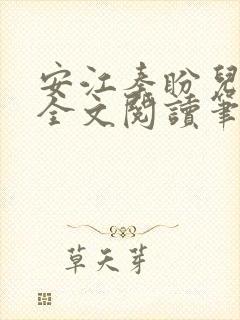 安江秦盼兒
全文閱讀筆
草天芽